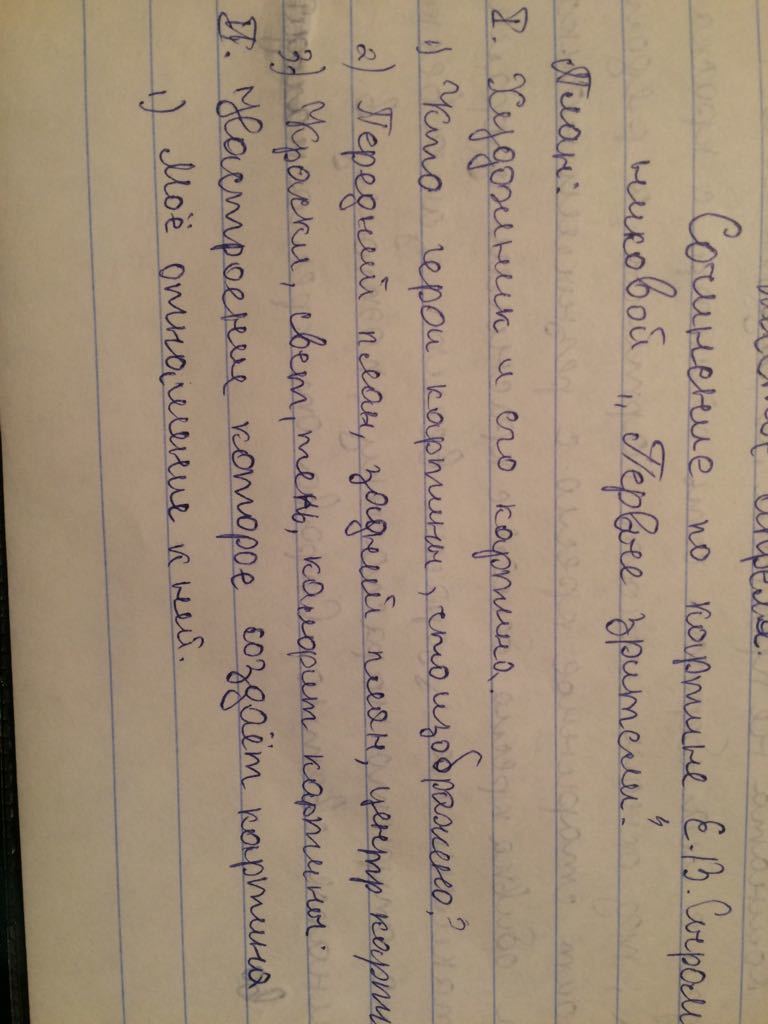 апреля.
Сочинение по картине Е.В. Сыром
никовой „Первые зрители".
План:
I. Художник и его картина.
1) Кто герои картины, что изображено?
2) Передний план, задний план, центр карти
3) Краски, свет, тень, колорит картины.
II. Настроение которое создаёт картина
1) Моё отношение к ней.